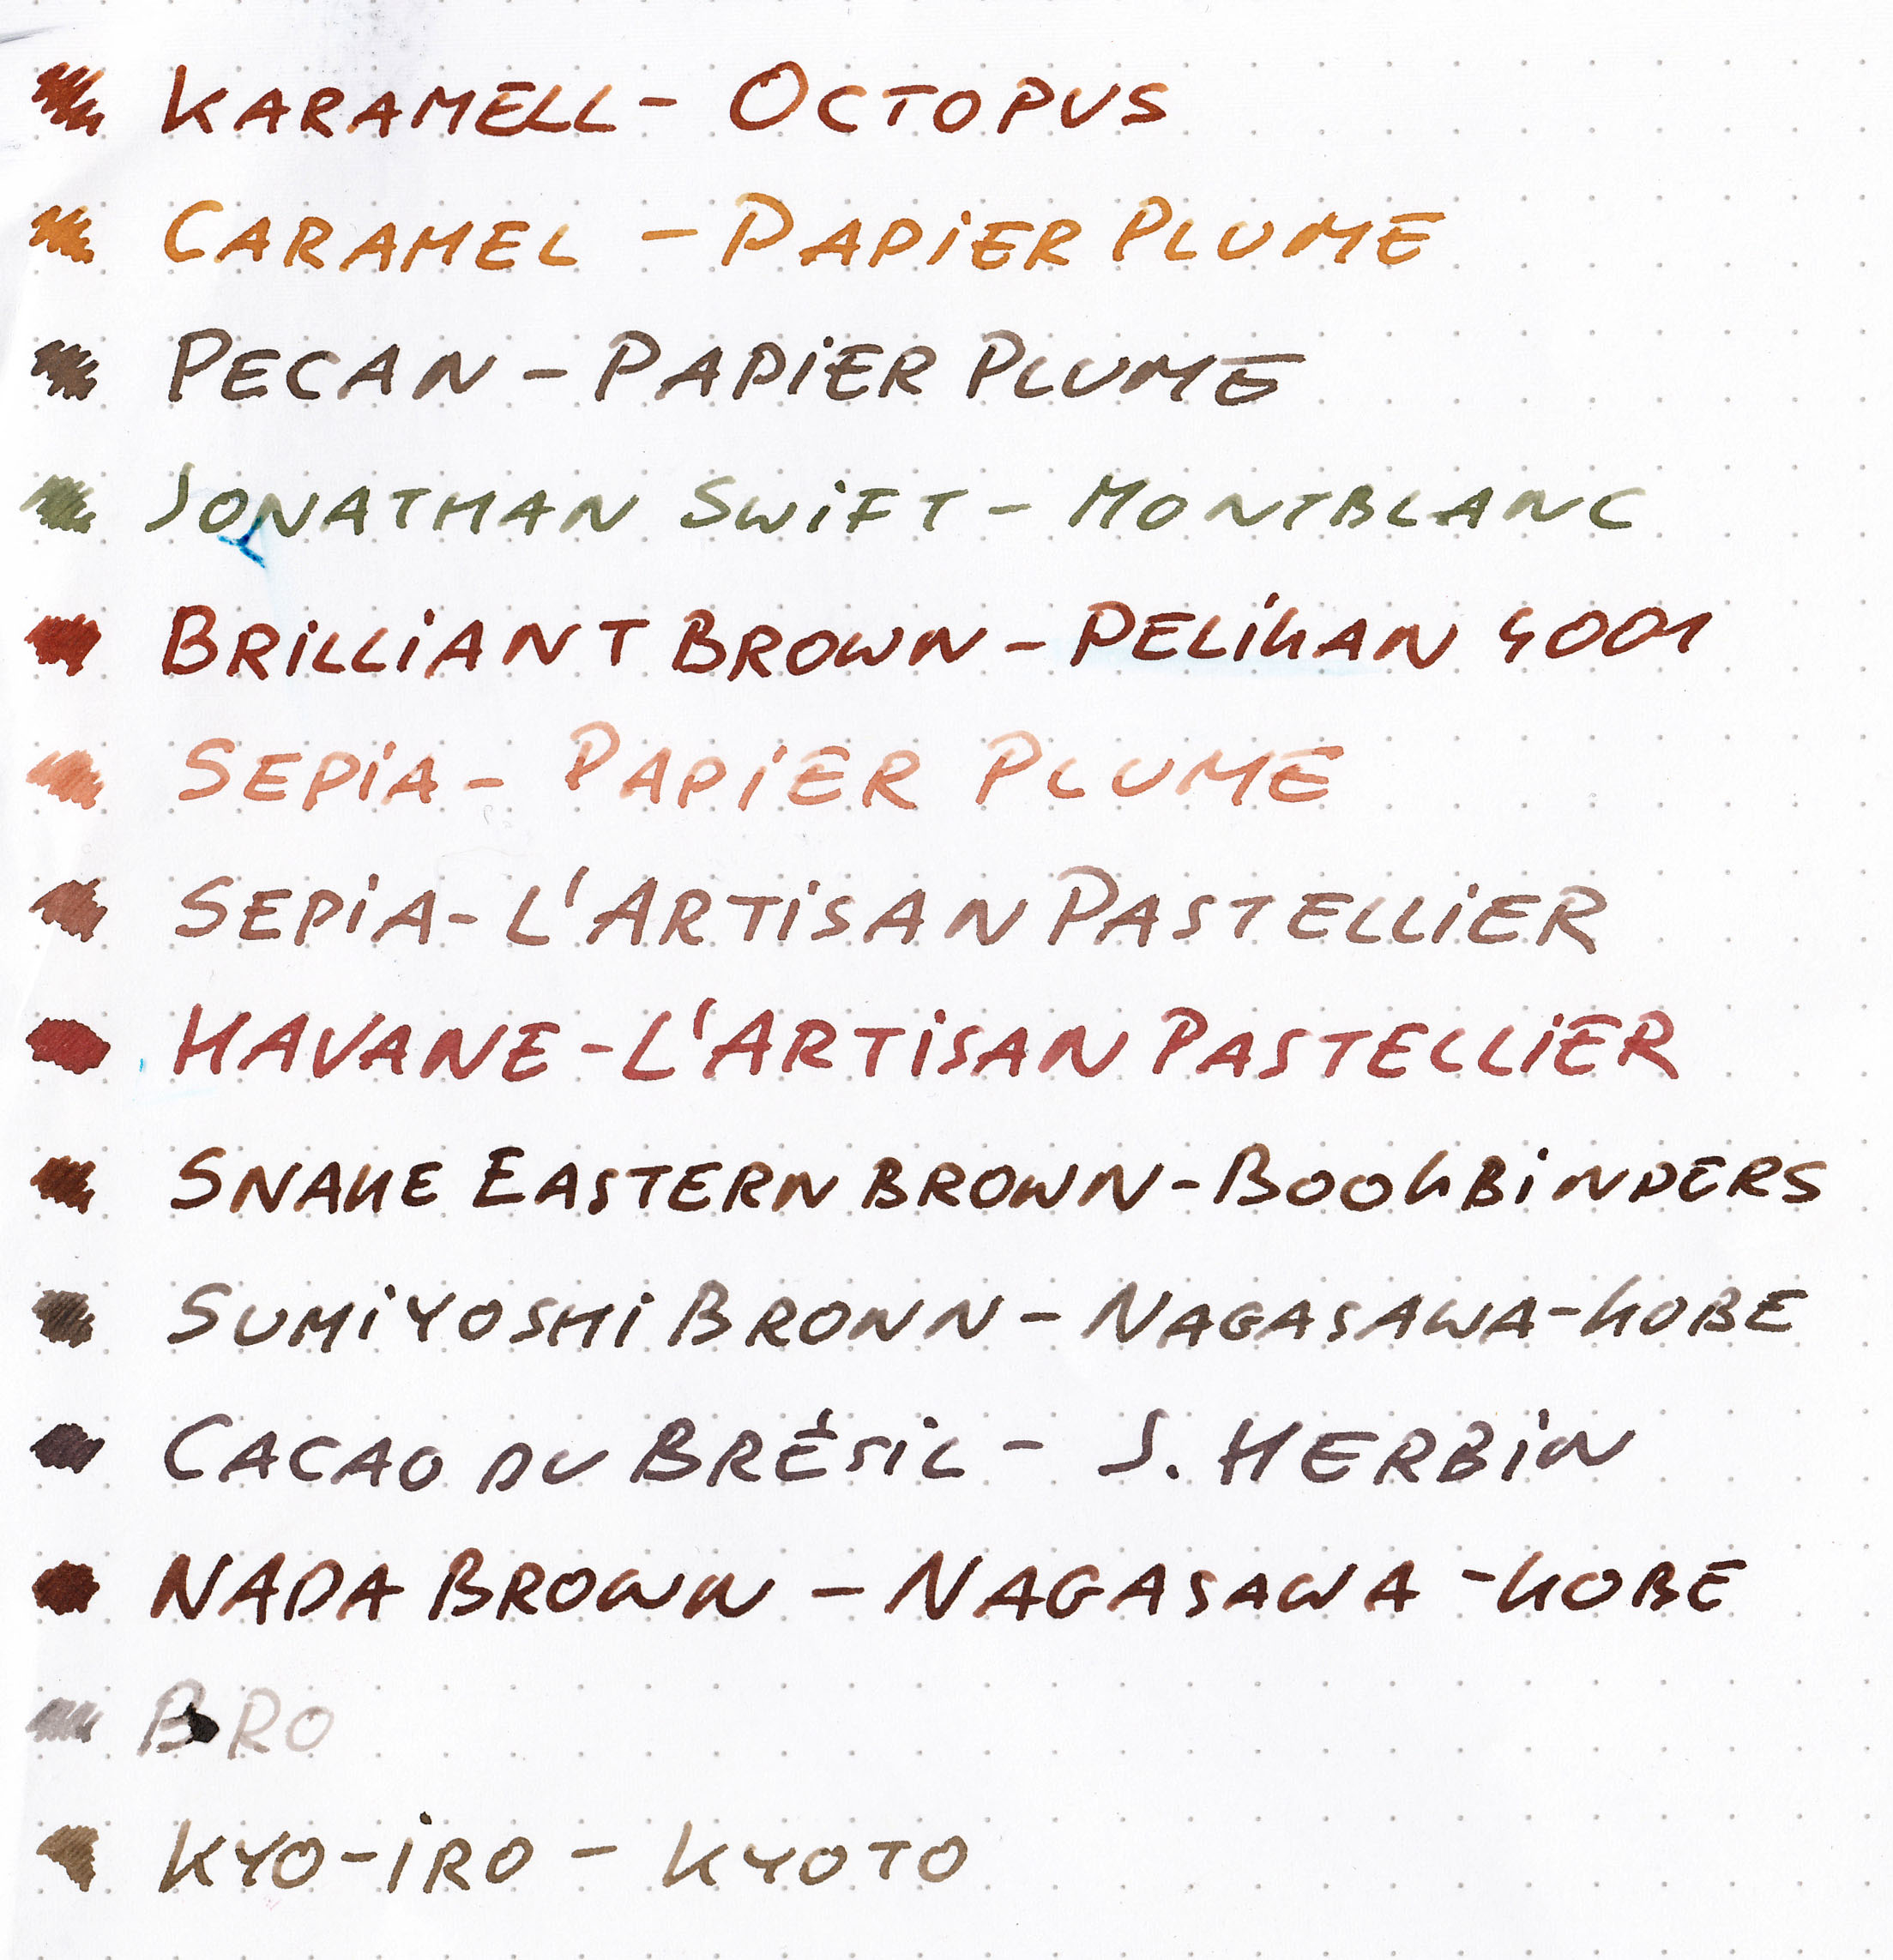 KARAMELL - OCTOPUS
CARAMEL - PAPiER PLUME
PECAN - PAPiER PLUME
JONATHAN SWiFT - MONTBLANC
BRiLLiANT BROWN - PELiKAN 4001
SEPiA - PAPiER PLUME
SEPiA - L'ARTiSAN PASTELLiER
HAVANE - L'ARTiSAN PASTELLiER
SNAKE EASTERN BROWN - BOOKBiNDERS
SUMiYOSHi BROWN - NAGASAWA-KOBE
CACAO DU BRÉSiL - J. HERBiN
NADA BROWN - NAGASAWA - KOBE
BRO
KYO-iRO - KYOTO